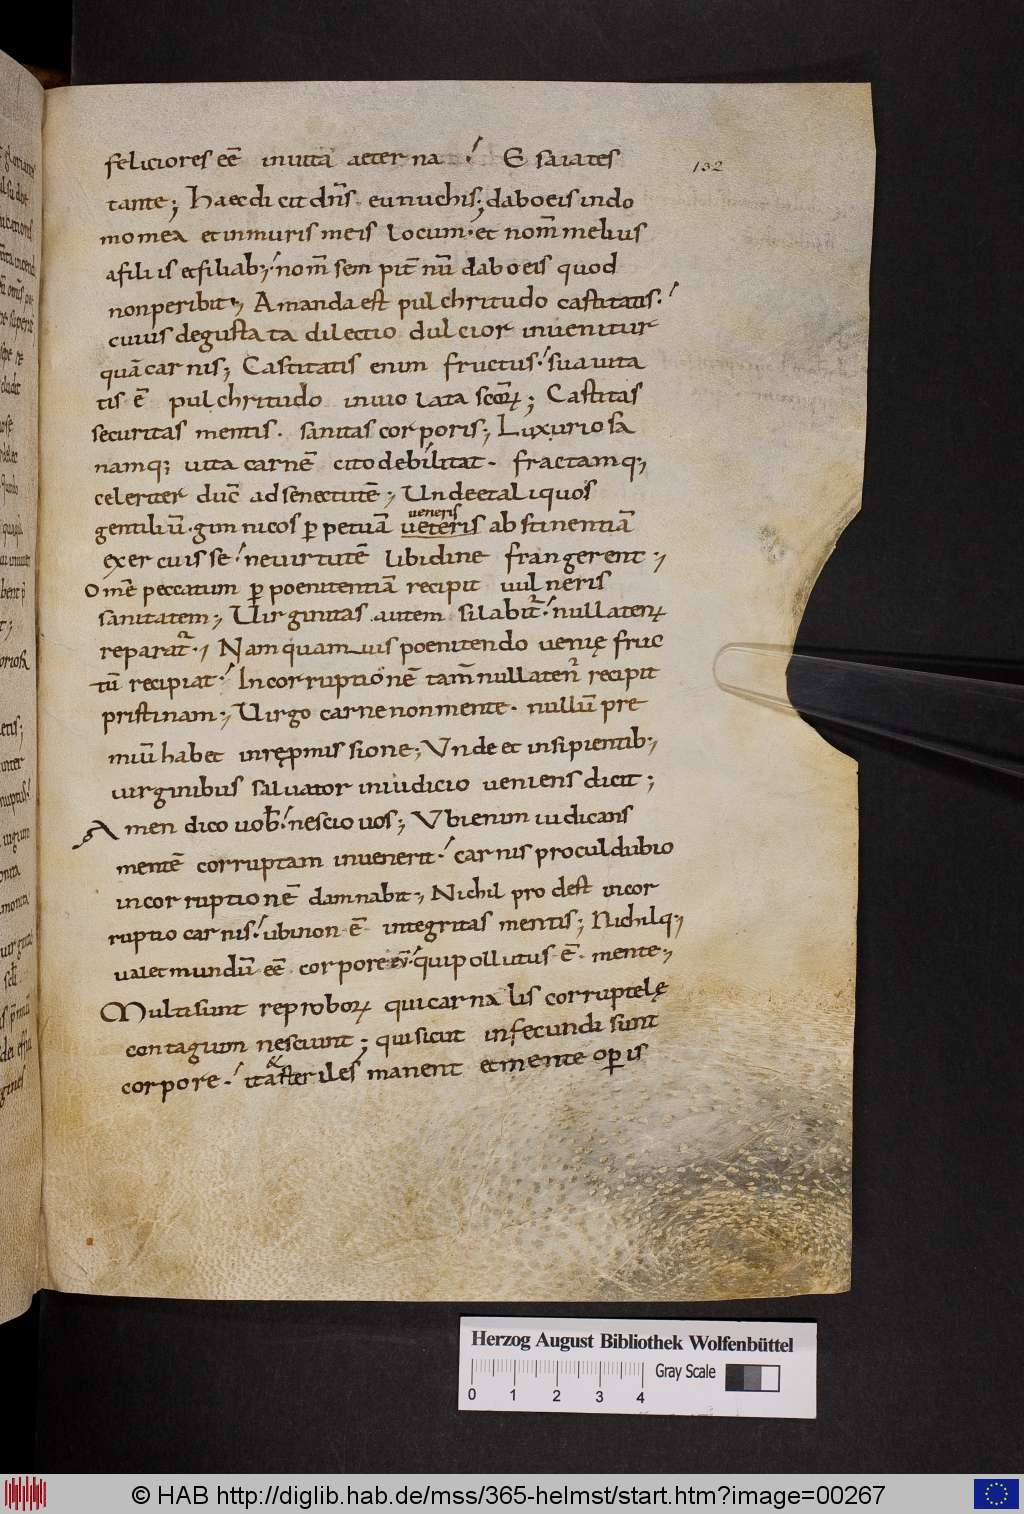 feliciores eē in uita aeterna. Esaia tes
tante; Haec dicit dn̄s eunuchis; dabo eis in do
mo mea et in muris meis locum. et nom̄ melius
a filiis et filiab; nom̄ sempit̄ nū dabo eis quod
non peribit; Amanda est pulchritudo castitatis.
cuius degustata dilectio dulcior inuenitur
quā carnis; Castitatis enim fructus. suauita
tis ē pulchritudo inuiolata scōrꝝ; Castitas
securitas mentis. sanitas corporis; Luxuriosa
namq; uita carnē cito debilitat. fractamq;
celeriter duc̄ ad senectutē; Unde et aliquos
ueneris
gentiliū. gimnicos ꝑpetuā ueteris abstinentiā
exercuisse. ne uirtutē libidine frangerent;
Om̄e peccatum ꝑ poenitentiā recipit uulneris
sanitatem; Uirginitas autem si labit̄. nullatenꝝ
reparat̄; Nam quamuis poenitendo uenię fruc
tū recipiat. Incorruptionē tam̄ nullaten recipit
pristinam; Uirgo carne non mente. nullū pre
miū habet in rępmissione; Unde et insipientib;
uirginibus saluator in iudicio ueniens dicit;
Amen dico uob̄. nescio uos; Ubi enim iudicans
mentē corruptam inuenerit. carnis procul dubio
incorruptionē damnabit; Nichil prodest incor
ruptio carnis. ubi non ē integritas mentis; Nichilq;
ualet mundū eē corpore eū. qui pollutus ē mente;
Multi sunt reproborꝝ qui carnalis corruptelę
contagium nesciunt; qui sicut infecundi sunt
corpore. ita steriles manent et mente oꝑis
132
Herzog August Bibliothek Wolfenbüttel
Gray Scale
0 1 2 3 4
© HAB http://diglib.hab.de/mss/365-helmst/start.htm?image=00267